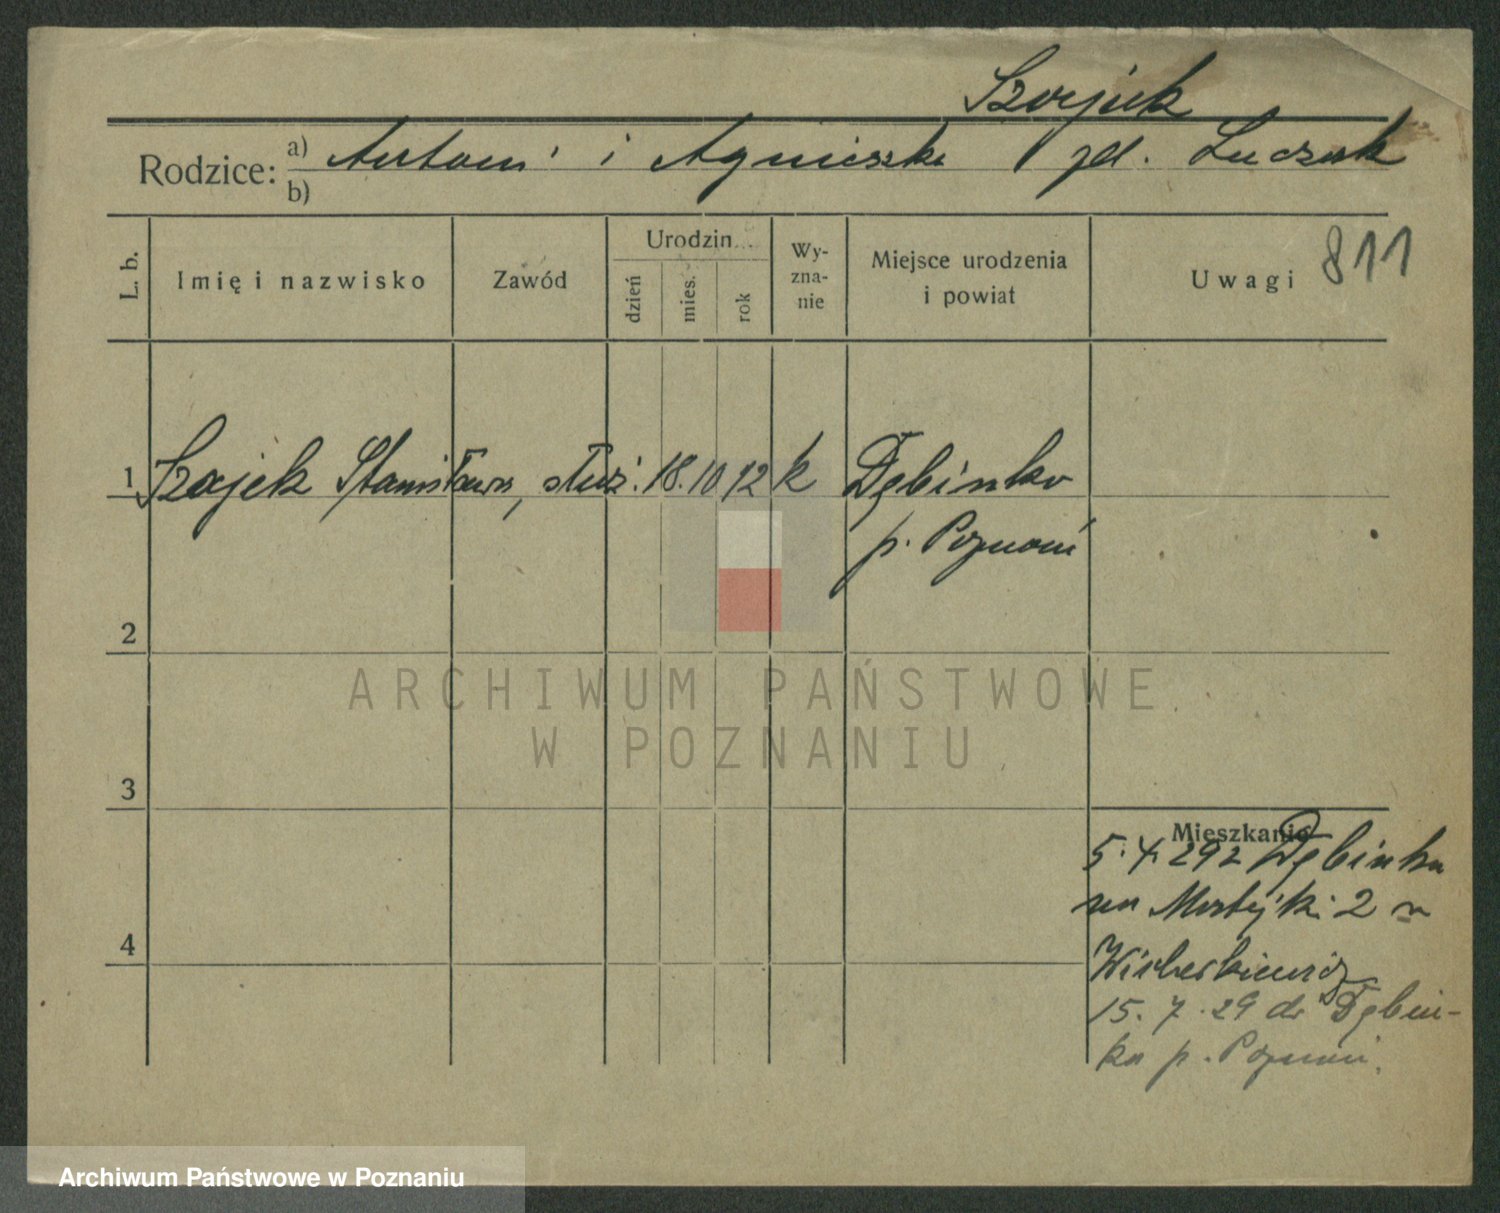 Szojek
Rodzice: a) Antoni i Agnieszka zd. Luczak
b)
L. b.
Imię i nazwisko
Zawód
Urodzin...
dzień
mies.
rok
Wy-
zna-
nie
Miejsce urodzenia
i powiat
Uwagi
811
1 Szojek Stanisława, służ. 18. 10 12 k Dębinko
p. Poznań
2
ARCHIWUM PAŃSTWOWE
W POZNANIU
3
Mieszkanie
5. 4. 29 z Dębinka
na 2
4
15. 7. 29 do Dębin-
ka p. Poznań.
Archiwum Państwowe w Poznaniu